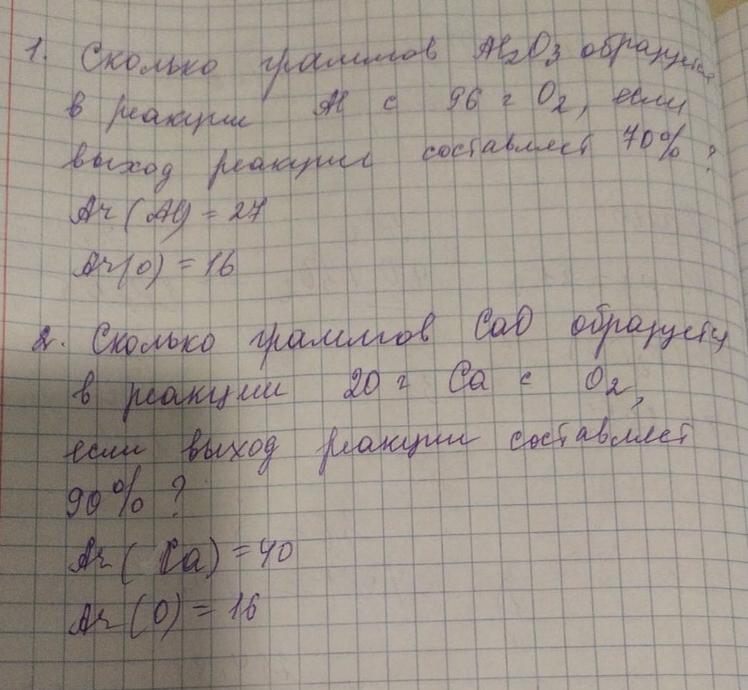 1. Сколько граммов Al2O3 образуется
в реакции Al с 96 г O2, если
выход реакции составляет 70% ?
Ar (Al) = 27
Ar(O) = 16
2. Сколько граммов CaO образуется
в реакции 20 г Ca с O2,
если выход реакции составляет
90% ?
Ar (Ca) = 40
Ar (O) = 16